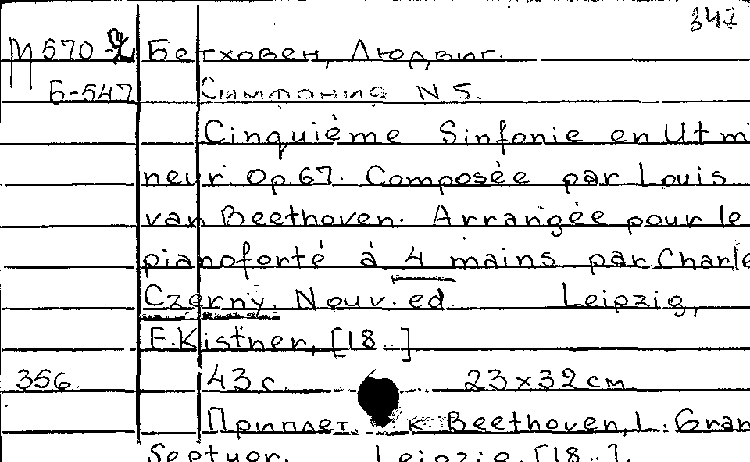 347
М 570-2 Бетховен, Людвиг.
Б-547 Симфония N 5.
Cinquiéme Sinfonie en Ut mi
neur Op. 67. Composée par Louis
van Beethoven. Arrangée pour le
pianoforté à 4 mains par Charle
Czerny. Nouv. ed Leipzig,
F. Kistner, [18..]
356 43 с. 23х32 см.
Приплет. к Beethoven, L. Gran
Septuor. Leipzig, [18..].